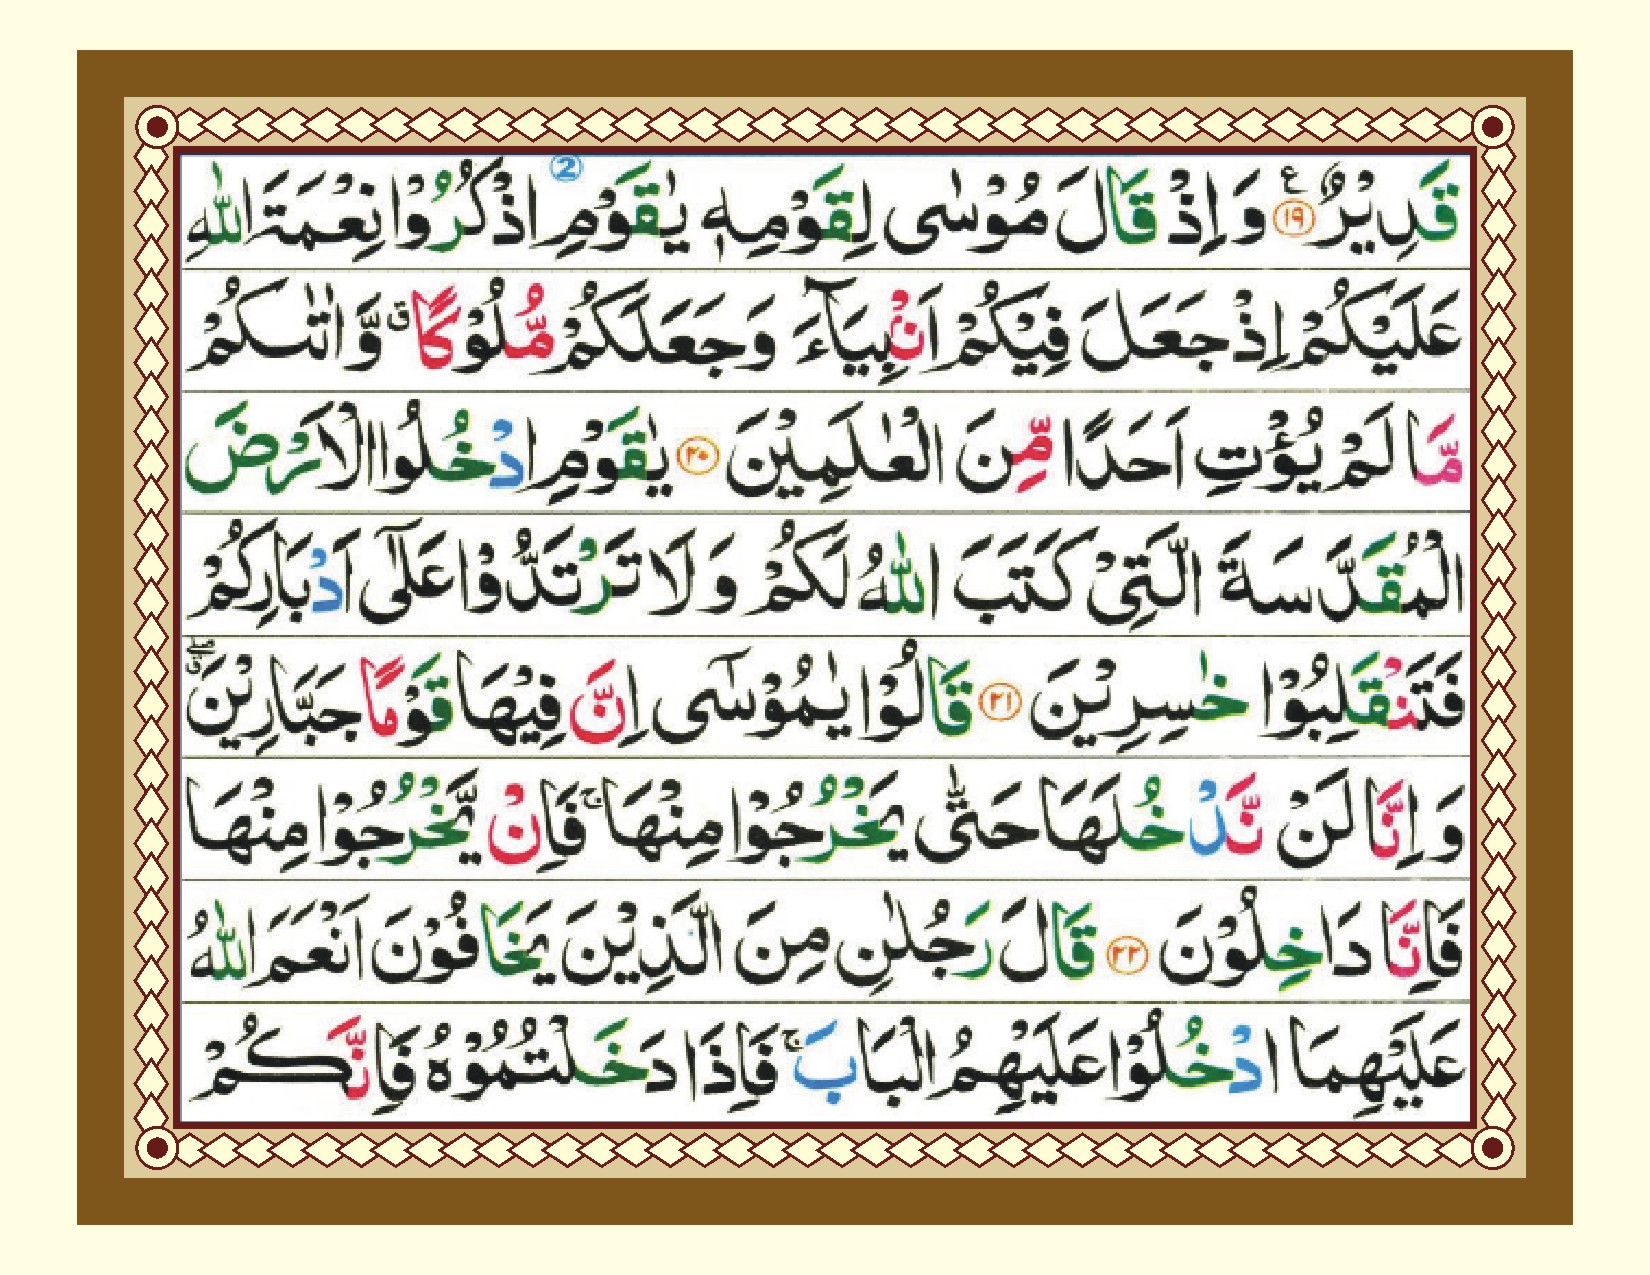 قَدِيْرٌ ۧ ﴿۱۹﴾ وَ اِذْ قَالَ مُوْسٰى لِقَوْمِهٖ يٰقَوْمِ 2 اذْكُرُوْا نِعْمَةَ اللّٰهِ
عَلَيْكُمْ اِذْ جَعَلَ فِيْكُمْ اَنْۢبِيَآءَ وَ جَعَلَكُمْ مُّلُوْكًا ۗ وَّ اٰتٰىكُمْ
مَّا لَمْ يُؤْتِ اَحَدًا مِّنَ الْعٰلَمِيْنَ ﴿۲۰﴾ يٰقَوْمِ ادْخُلُوا الْاَرْضَ
الْمُقَدَّسَةَ الَّتِيْ كَتَبَ اللّٰهُ لَكُمْ وَ لَا تَرْتَدُّوْا عَلٰٓى اَدْبَارِكُمْ
فَتَنْقَلِبُوْا خٰسِرِيْنَ ﴿۲۱﴾ قَالُوْا يٰمُوْسٰٓى اِنَّ فِيْهَا قَوْمًا جَبَّارِيْنَ ۖۗ
وَ اِنَّا لَنْ نَّدْخُلَهَا حَتّٰى يَخْرُجُوْا مِنْهَا ۚ فَاِنْ يَّخْرُجُوْا مِنْهَا
فَاِنَّا دَاخِلُوْنَ ﴿۲۲﴾ قَالَ رَجُلٰنِ مِنَ الَّذِيْنَ يَخَافُوْنَ اَنْعَمَ اللّٰهُ
عَلَيْهِمَا ادْخُلُوْا عَلَيْهِمُ الْبَابَ ۚ فَاِذَا دَخَلْتُمُوْهُ فَاِنَّكُمْ